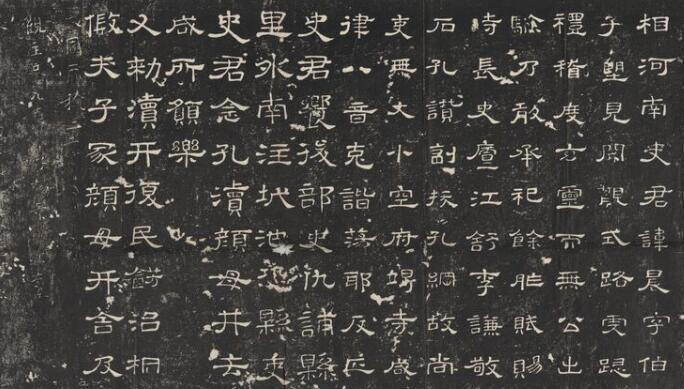 相河南史君諱晨字伯
子望見闕觀式路虔跽
禮稽度玄靈而無公出
除乃敢承祀餘胙賦賜
時長史廬江舒李謙敬
石孔讚副掾孔綱故尚
吏無大小空府竭寺咸
律八音克諧蕩耶反正
史君饗後部史仇誧縣
里外南注城池恐縣吏
史君念孔瀆顏母井去
咸所願樂
又勑瀆井復民餝治桐
假夫子冢顏母井舍及